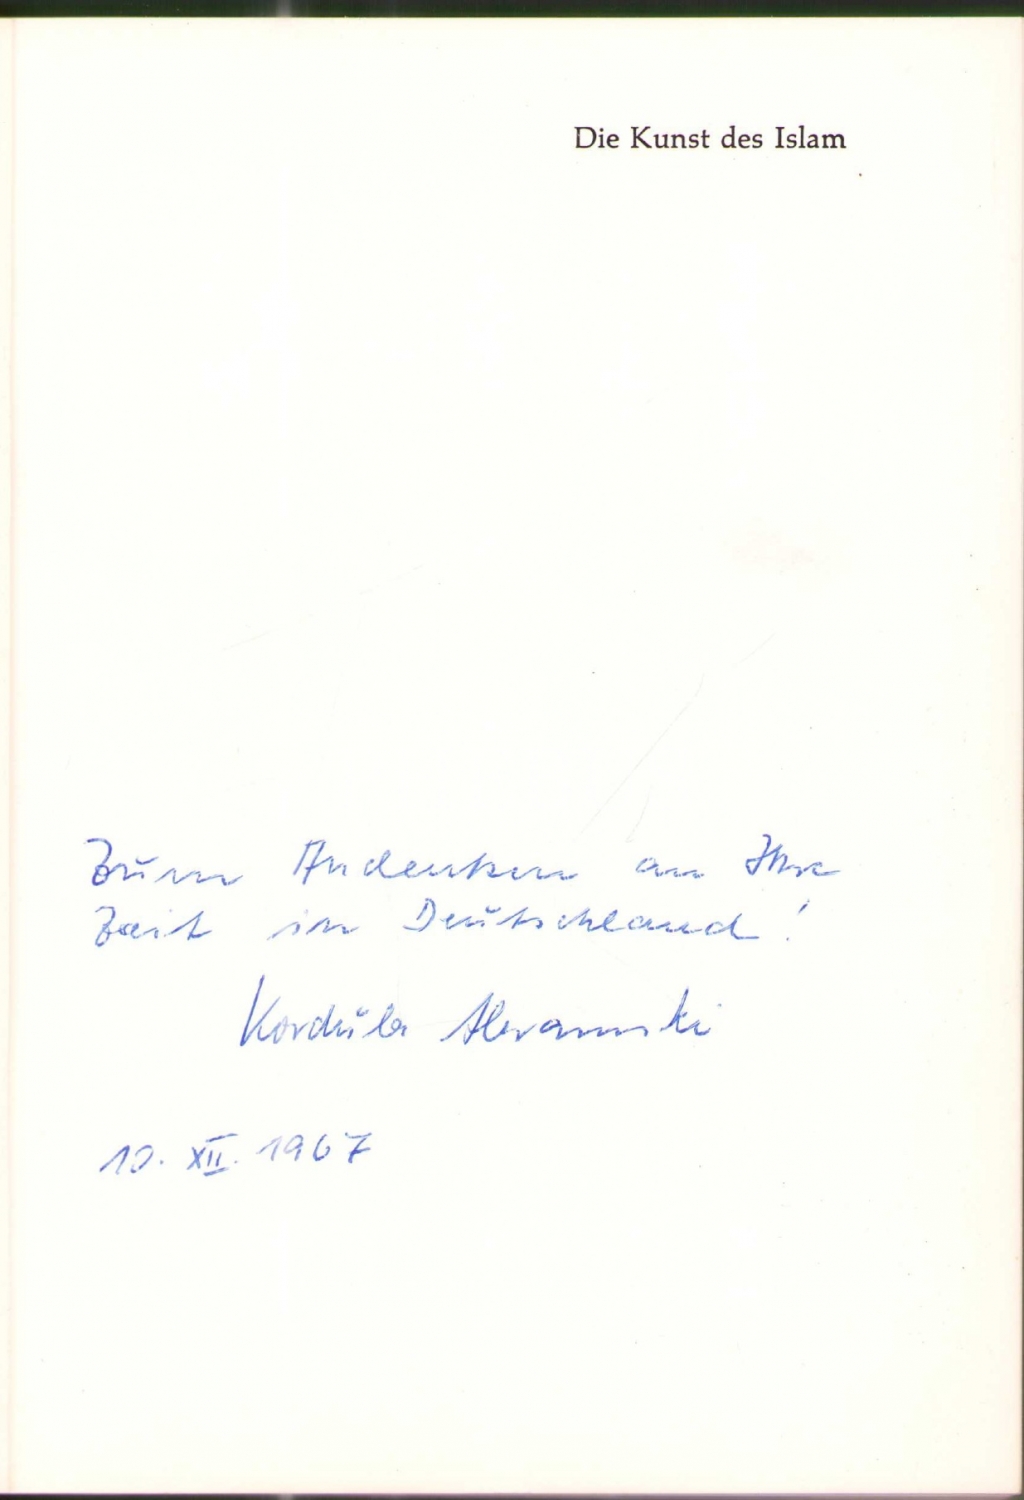 Die Kunst des Islam
Zum Andenken an Ihre
Zeit in Deutschland!
Kordula
10. XII. 1967